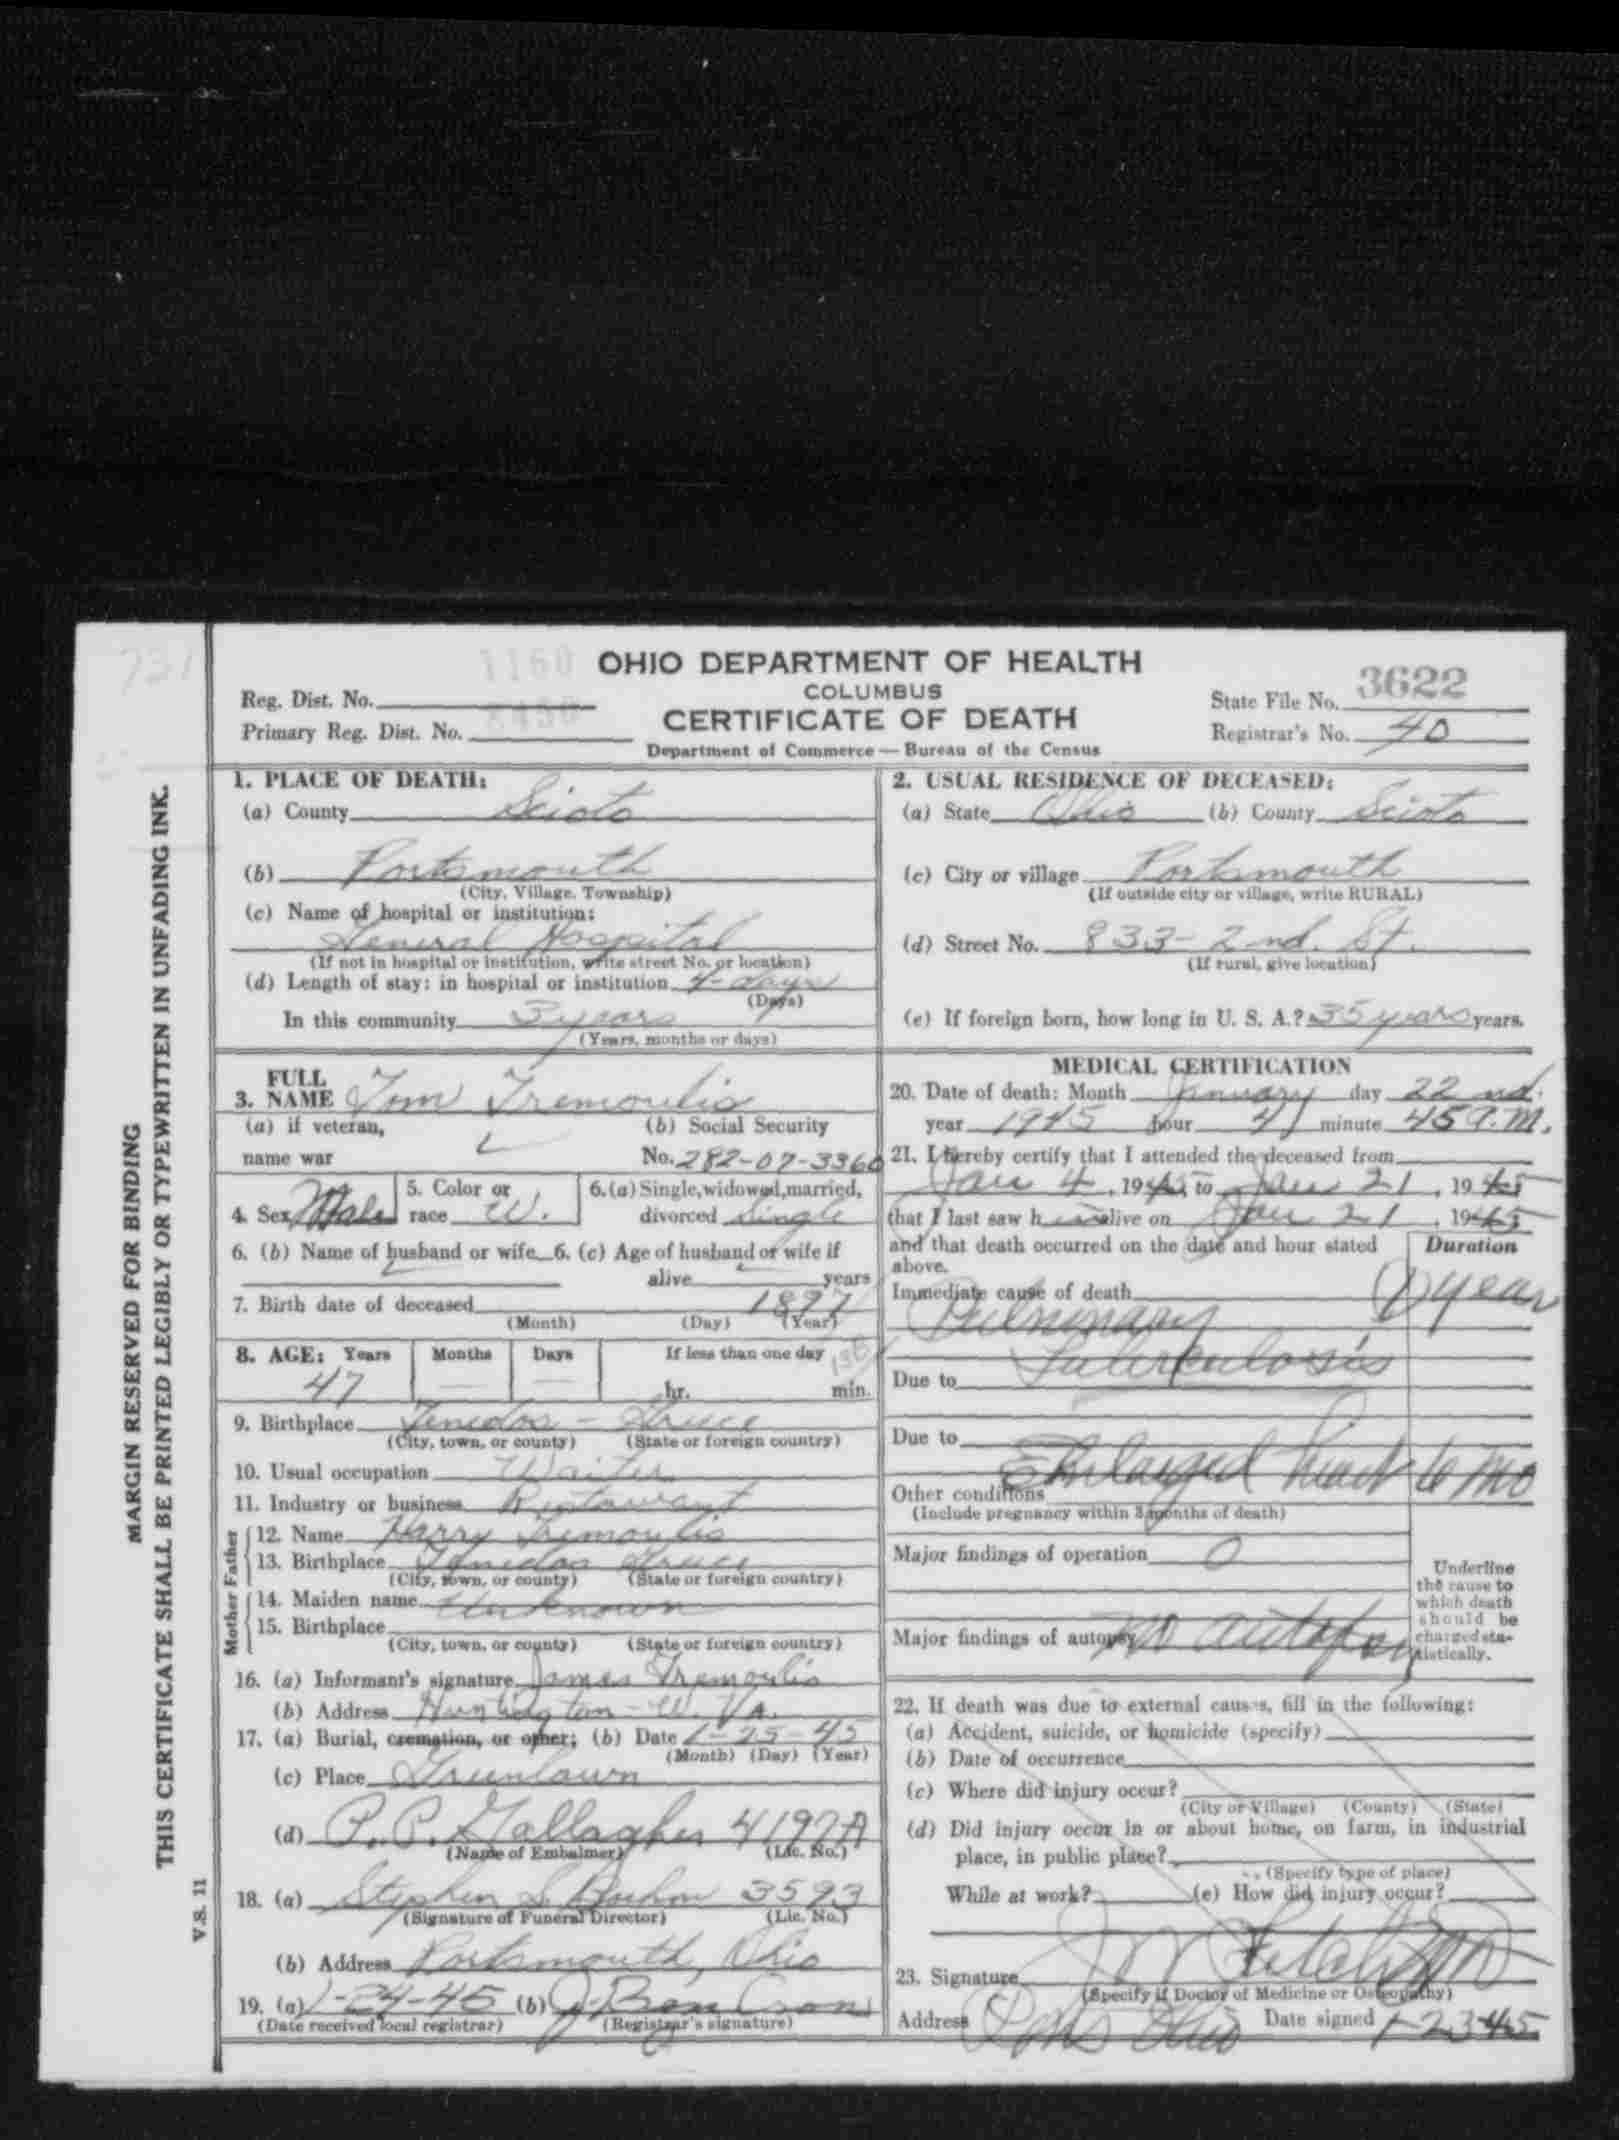 737
1160
OHIO DEPARTMENT OF HEALTH
COLUMBUS
CERTIFICATE OF DEATH
Department of Commerce — Bureau of the Census
Reg. Dist. No.
Primary Reg. Dist. No. 8430
State File No. 3622
Registrar's No. 40
MARGIN RESERVED FOR BINDING
THIS CERTIFICATE SHALL BE PRINTED LEGIBLY OR TYPEWRITTEN IN UNFADING INK.
V.S. 11
1. PLACE OF DEATH:
(a) County Scioto
(b) Portsmouth
(City, Village, Township)
(c) Name of hospital or institution:
General Hospital
(If not in hospital or institution, write street No. or location)
(d) Length of stay: in hospital or institution 4-days
(Days)
In this community 3 years
(Years, months or days)
2. USUAL RESIDENCE OF DECEASED:
(a) State Ohio (b) County Scioto
(c) City or village Portsmouth
(If outside city or village, write RURAL)
(d) Street No. 833- 2nd. St.
(If rural, give location)
(e) If foreign born, how long in U. S. A.? 35 years years.
3. FULL NAME Tom Tremoulis
(a) if veteran,
name war
(b) Social Security
No. 282-07-3360
4. Sex Male
5. Color or race W.
6. (a) Single, widowed, married,
divorced Single
6. (b) Name of husband or wife 6. (c) Age of husband or wife if
alive years
7. Birth date of deceased 1897
(Month) (Day) (Year)
8. AGE: Years Months Days If less than one day
47 — — hr. min.
9. Birthplace Tenedos - Greece
(City, town, or county) (State or foreign country)
10. Usual occupation Waiter
11. Industry or business Restaurant
Father
12. Name Harry Tremoulis
13. Birthplace Tenedos Greece
(City, town, or county) (State or foreign country)
Mother
14. Maiden name Unknown
15. Birthplace
(City, town, or county) (State or foreign country)
16. (a) Informant's signature James Tremoulis
(b) Address Huntington - W. Va.
17. (a) Burial, cremation, or other; (b) Date 1-25-45
(Month) (Day) (Year)
(c) Place Greenlawn
(d) P. P. Gallagher 4197A
(Name of Embalmer) (Lic. No.)
18. (a) Stephen S. 3593
(Signature of Funeral Director) (Lic. No.)
(b) Address Portsmouth, Ohio
19. (a) 1-24-45 (b)
(Date received local registrar) (Registrar's signature)
MEDICAL CERTIFICATION
20. Date of death: Month January day 22 nd.
year 1945 hour 4 minute 45 A.M.
21. I hereby certify that I attended the deceased from
Jan 4, 1945, to Jan 21, 1945
that I last saw him alive on Jan 21, 1945
and that death occurred on the date and hour stated
above.
Duration
Immediate cause of death 1 year
Pulmonary
Tuberculosis
Due to
Due to
Enlarged heart 6 mo
Other conditions
(Include pregnancy within 3 months of death)
Major findings of operation 0
Major findings of autopsy no autopsy
Underline
the cause to
which death
should be
charged sta-
tistically.
22. If death was due to external causes, fill in the following:
(a) Accident, suicide, or homicide (specify)
(b) Date of occurrence
(c) Where did injury occur?
(City or Village) (County) (State)
(d) Did injury occur in or about home, on farm, in industrial
place, in public place?
(Specify type of place)
While at work? (e) How did injury occur?
23. Signature MD
(Specify if Doctor of Medicine or Osteopathy)
Address Ohio Date signed 1-23-45